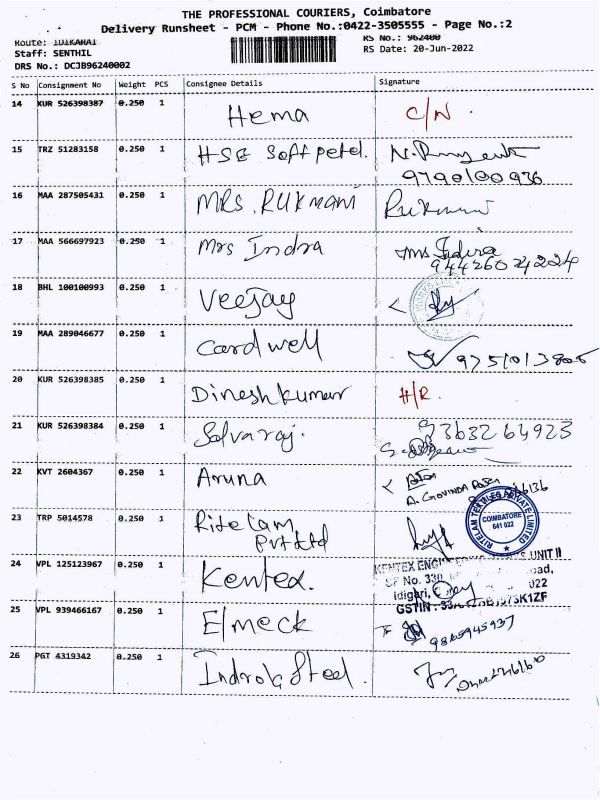 THE PROFESSIONAL COURIERS, Coimbatore
Delivery Runsheet - PCM - Phone No.:0422-3505555 - Page No.:2
Route: IDIKARAI
RS No.: 962400
Staff: SENTHIL
RS Date: 20-Jun-2022
DRS No.: DCJB96240002
S No Consignment No Weight PCS Consignee Details Signature
14 KUR 526398387 0.250 1 Hema C/N
15 TRZ 51283158 0.250 1 HSE Soft
9790100936
16 MAA 287505431 0.250 1 MRS. RUKMANI Rukmani
17 MAA 566697923 0.250 1 Mrs Indra Mrs Indira
18 BHL 100100993 0.250 1 Veejay
19 MAA 289046677 0.250 1 Cardwell
20 KUR 526398385 0.250 1 Dineshkumar H/R.
21 KUR 526398384 0.250 1 Selvaraj. 9363264923
22 KVT 2604367 0.250 1 Aruna
A. GOVINDA
23 TRP 5014578 0.250 1 Ritelam
Pvt Ltd
RITELAM TEXTILES PRIVATE LIMITED
COIMBATORE
641 022
24 VPL 125123967 0.250 1 Kentex.
KENTEX UNIT II
SF No. Road,
Idigari, 022
GSTIN
25 VPL 939466167 0.250 1 Elmeck 9865945937
26 PGT 4319342 0.250 1 Steel.